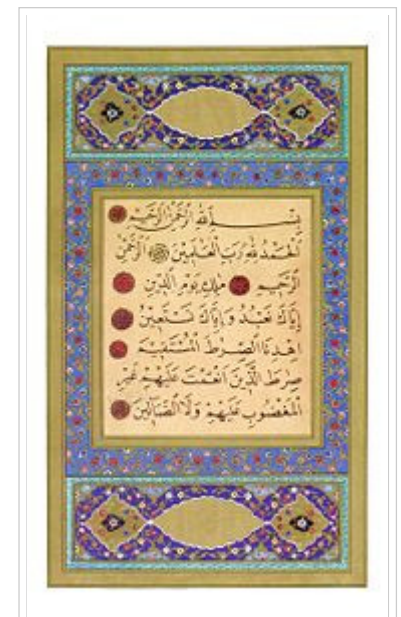 بِسْمِ اللهِ الرَّحْمٰنِ الرَّحِيْمِ
اَلْحَمْدُ لِلّٰهِ رَبِّ الْعٰلَمِيْنَ اَلرَّحْمٰنِ
الرَّحِيْمِ مٰلِكِ يَوْمِ الدِّيْنِ
اِيَّاكَ نَعْبُدُ وَاِيَّاكَ نَسْتَعِيْنُ
اِهْدِنَا الصِّرَاطَ الْمُسْتَقِيْمَ
صِرَاطَ الَّذِيْنَ اَنْعَمْتَ عَلَيْهِمْ غَيْرِ
الْمَغْضُوْبِ عَلَيْهِمْ وَلَا الضَّالِّيْنَ